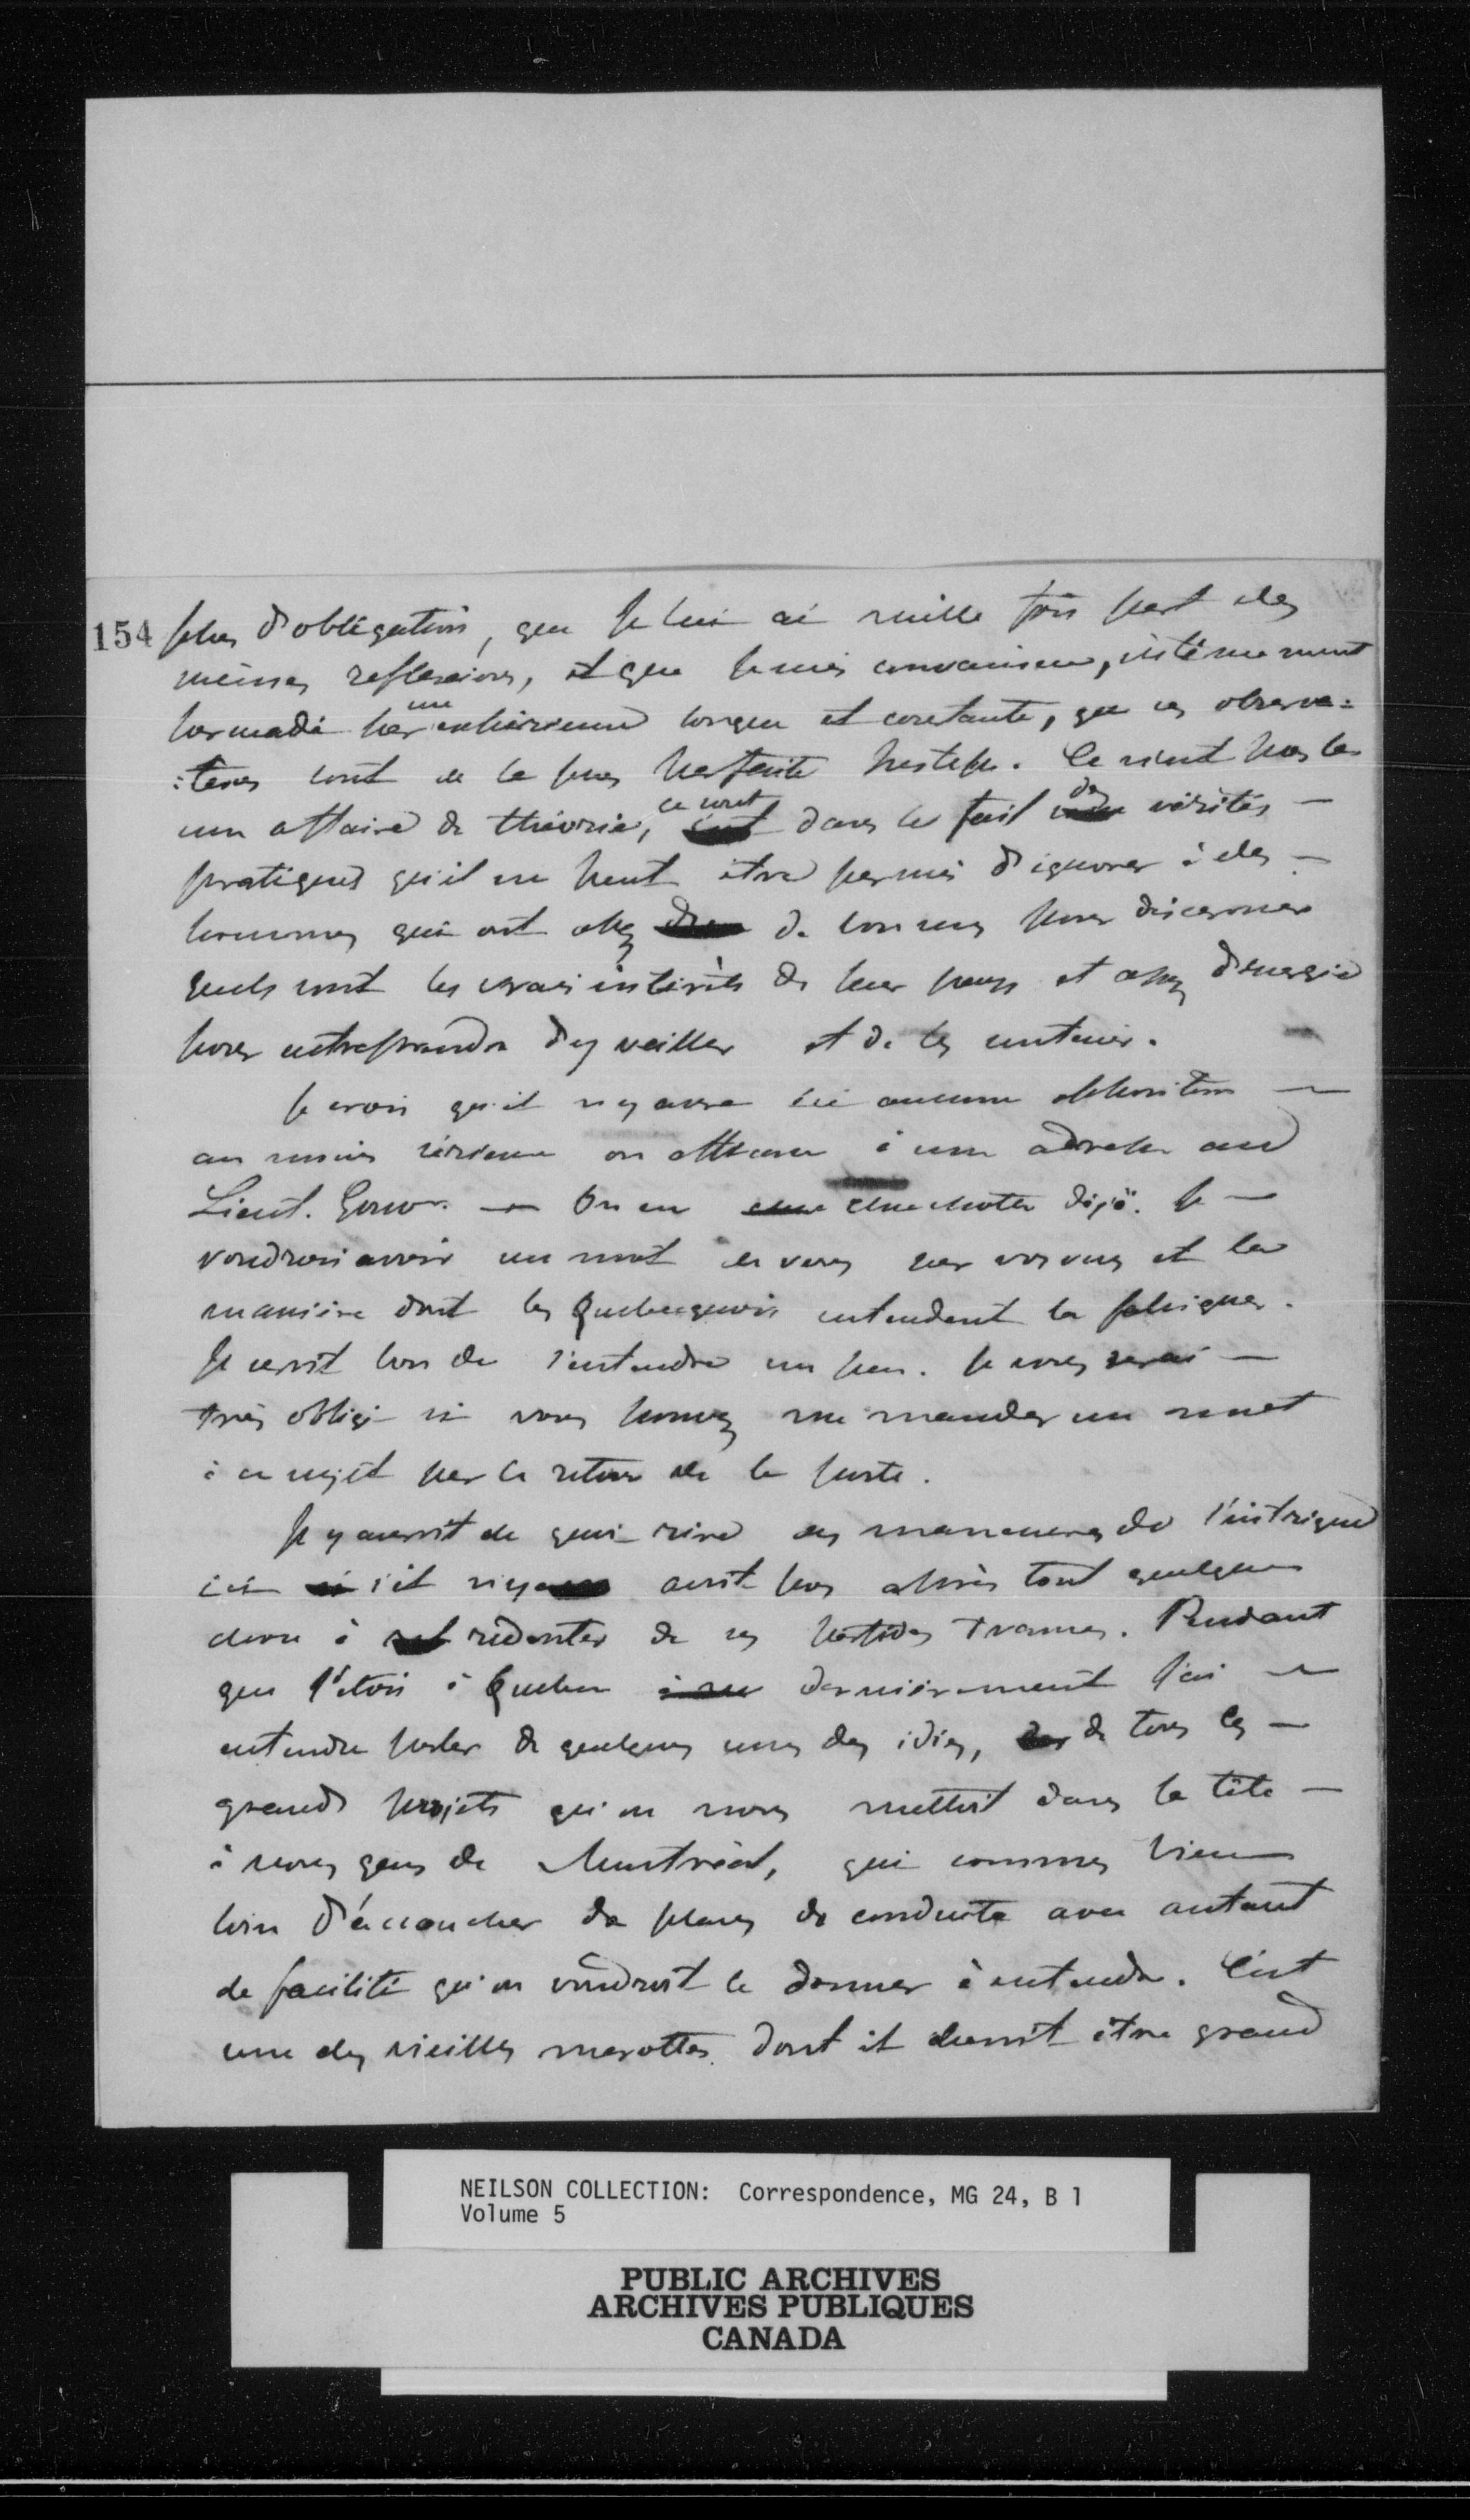 154 plus d'obligation, que Je lui ai mille fois fait des
mêmes reflexions, et que Je suis convaincu, intimement
persuadé par une expérience longue et constante, que ces observa=
:tions sont de la plus parfaite justesse. Ce n'est pas là
une affaire de théorie, ce sont dans le fait des vérités —
pratiques qu'il ne peut être permis d'ignorer à des —
hommes qui ont assez de bon sens pour discerner
quels sont les vrais intérêts de leur pays et assez d'energie
pour entreprendre d'y veiller et de les soutenir.
Je crois qu'il n'y aura ici aucune opposition —
au moins sérieuse ou à une adresse au
Lieut. Gouvr. — On en chuchote déja. Je —
voudrois avoir un mot de vous sur vos vues et la
manière dont les Quebecquois entendent la fabriquer.
Il seroit bon de s'entendre un peu. Je vous serai —
très obligé si vous pouvez me mander un mot
à ce sujet par le retour de la poste.
Il y auroit de quoi rire des manœuvres de l'intrigue
ici s'il n'y avoit pas après tout quelque
chose à redouter de ses perfides trames. Pendant
que J'étois à Quebec dernièrement J'ai —
entendu parler de quelques unes des idées, de tous les —
grands projets qu'on nous mettoit dans la tête —
à nous gens de Montréal, qui sommes bien
loin d'accoucher de plans de conduite avec autant
de facilité qu'on voudroit le donner à entendre. C'est
une des vieilles marottes dont il devroit être grand
NEILSON COLLECTION: Correspondence, MG 24, B 1
Volume 5
PUBLIC ARCHIVES
ARCHIVES PUBLIQUES
CANADA